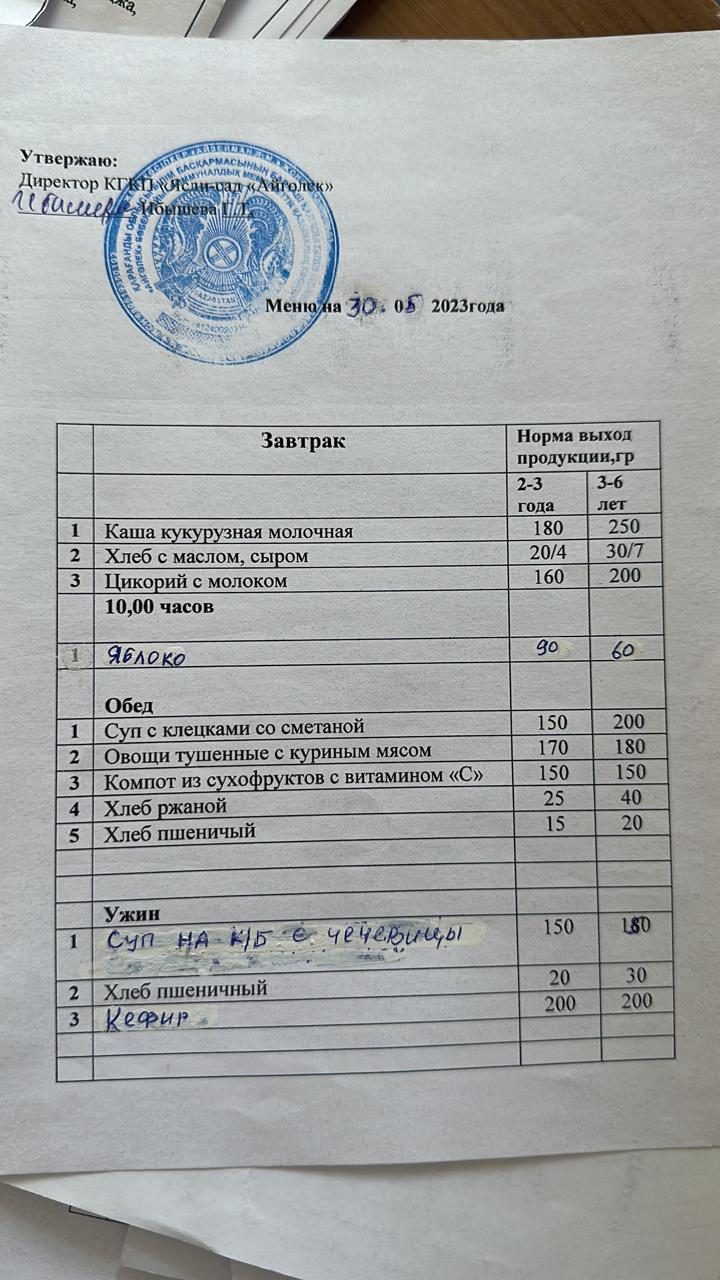 Утвержаю:
Директор КГКП «Ясли-сад «Айголек»
Ибышева Г.Т.
Меню на 30. 05 2023года
Завтрак Норма выход продукции,гр
2-3 года 3-6 лет
1 Каша кукурузная молочная 180 250
2 Хлеб с маслом, сыром 20/4 30/7
3 Цикорий с молоком 160 200
10,00 часов
1 Яблоко 90 60
Обед
1 Суп с клецками со сметаной 150 200
2 Овощи тушенные с куриным мясом 170 180
3 Компот из сухофруктов с витамином «С» 150 150
4 Хлеб ржаной 25 40
5 Хлеб пшеничый 15 20
Ужин
1 Суп на к/б с чечевицы 150 180
2 Хлеб пшеничный 20 30
3 Кефир 200 200